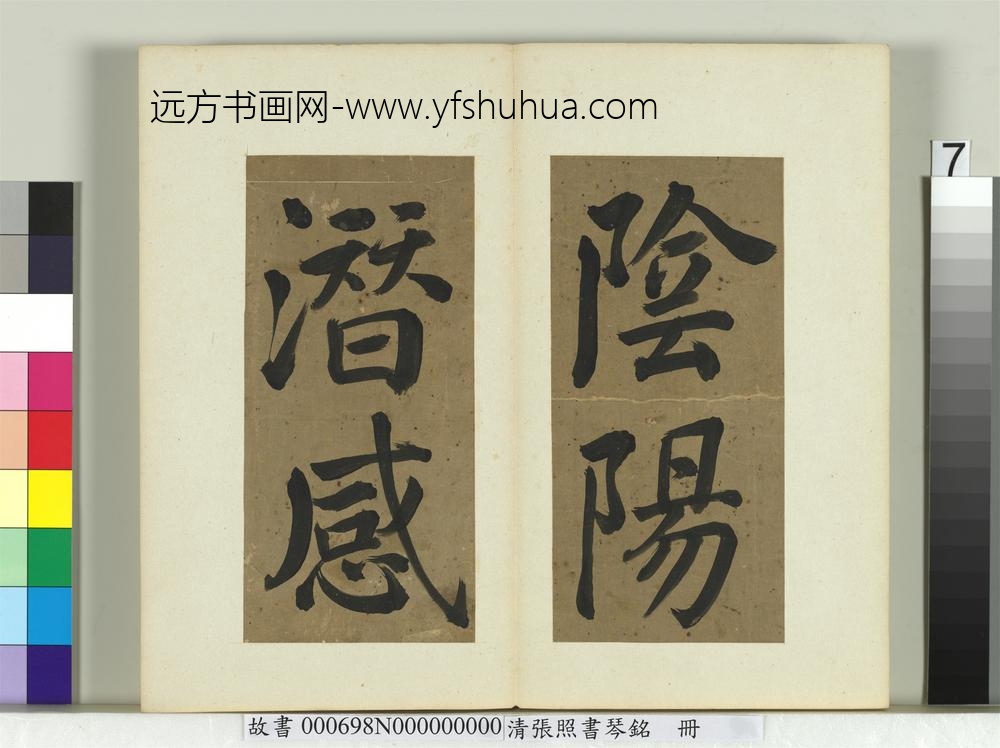 远方书画网-www.yfshuhua.com
7
陰陽
潛感
故書 000698N000000000 清張照書琴銘 冊